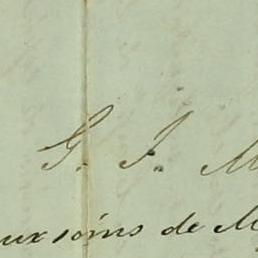 G. J. M
ux soins de M